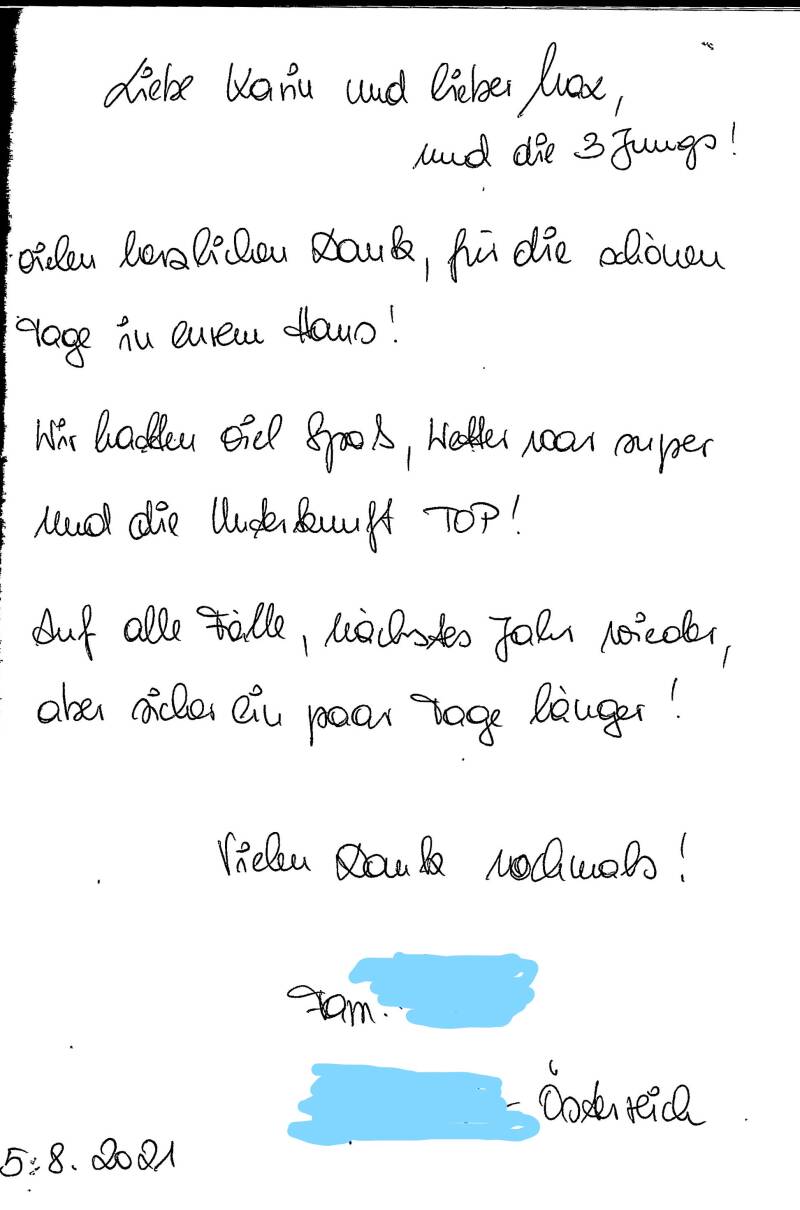 Liebe Karin und lieber Max,
und die 3 Jungs!
vielen herzlichen Dank, für die schönen
Tage in eurem Haus!
Wir hatten viel Spaß, Wetter war super
und die Unterkunft TOP!
Auf alle Fälle, nächstes Jahr wieder,
aber sicher ein paar Tage länger!
Vielen Dank nochmals!
Fam.
- Österreich
5.8.2021